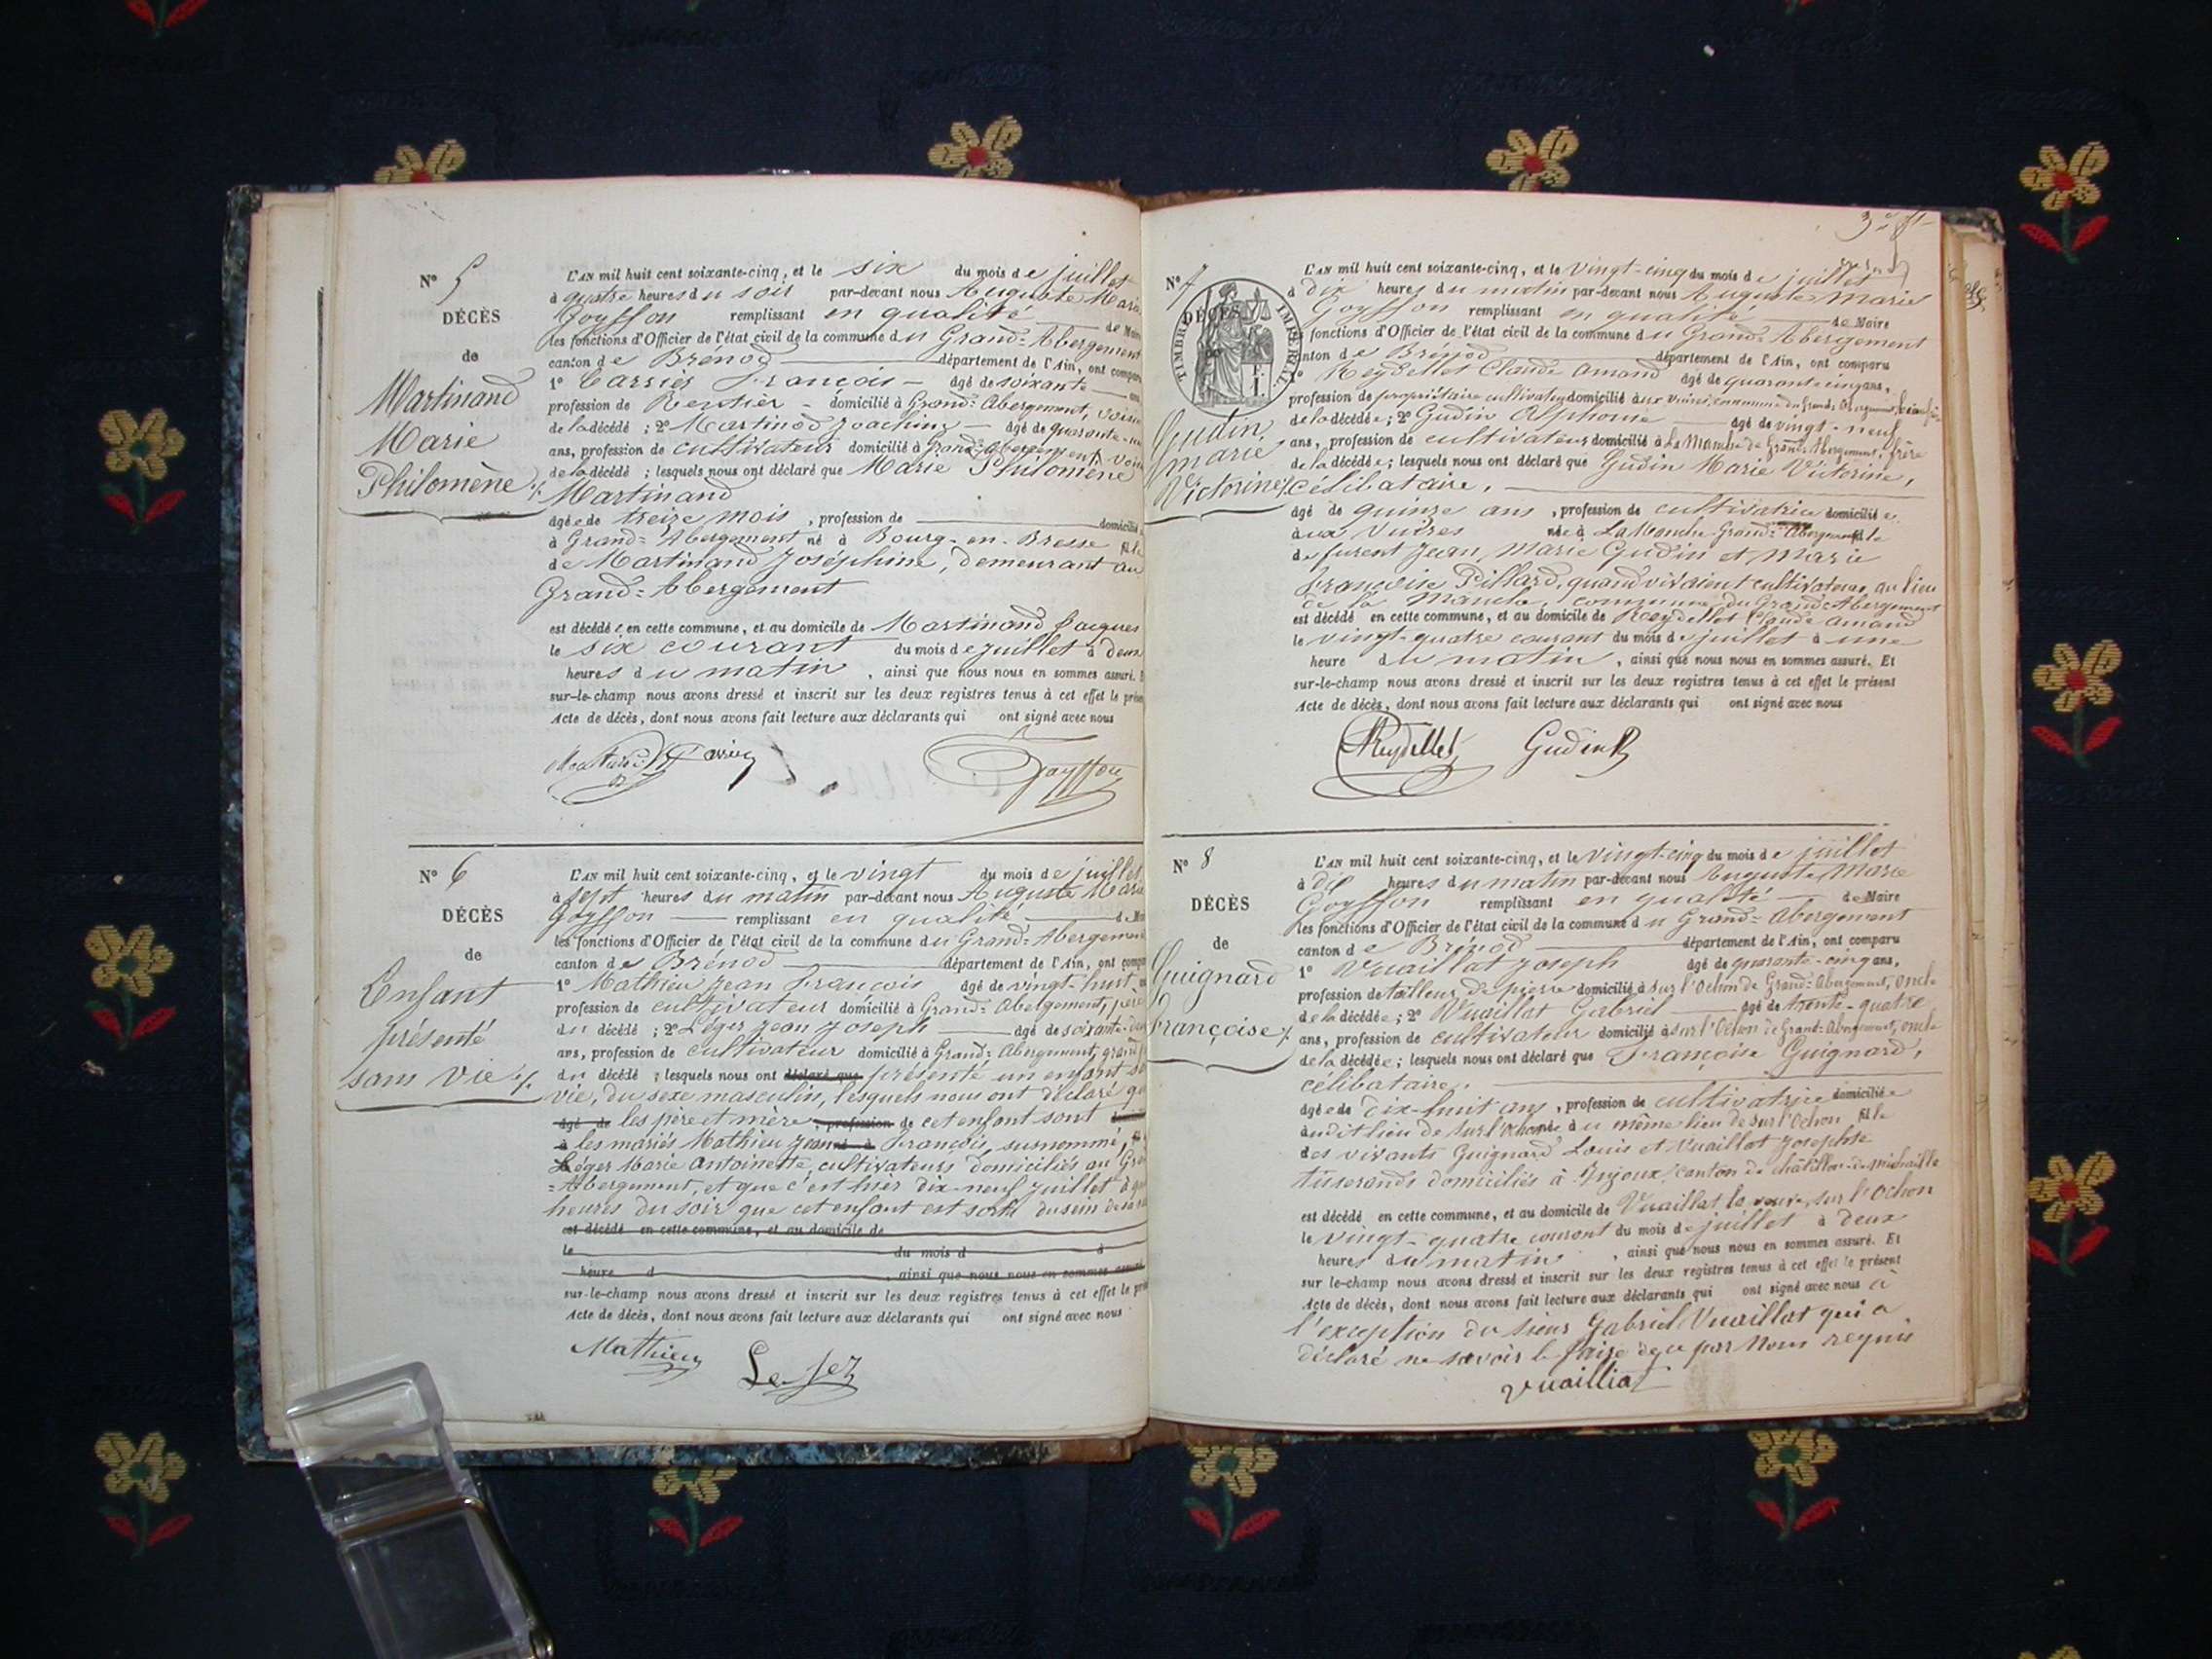 N° 5
DÉCÈS
de
Martinand
Marie
Philomène ./.
L'AN mil huit cent soixante-cinq, et le six du mois de juillet
à quatre heures du soir par-devant nous Auguste Marie
Goyffon remplissant en qualité de Maire
les fonctions d'Officier de l'état civil de la commune du Grand-Abergement
canton de Brénod département de l'Ain, ont comparu
1° Carrier François âgé de soixante
profession de Rentier domicilié à Grand-Abergement, voisin
de la décédé ; 2° Martinod Joachim âgé de quarante
ans, profession de cultivateur domicilié à Grand-Abergement, voisin
de la décédé ; lesquels nous ont déclaré que Marie Philomène
Martinand
âgée de treize mois, profession de domicilié
à Grand-Abergement né à Bourg-en-Bresse fille
de Martinand Joséphine, demeurant au
Grand-Abergement
est décédée en cette commune, et au domicile de Martinand Jacques
le six courant du mois de juillet à deux
heures du matin, ainsi que nous nous en sommes assuré.
sur-le-champ nous avons dressé et inscrit sur les deux registres tenus à cet effet le
Acte de décès, dont nous avons fait lecture aux déclarants qui ont signé avec nous
Carrier Goyffon
N° 6
DÉCÈS
de
Enfant
présenté
sans vie ./.
L'AN mil huit cent soixante-cinq, et le vingt du mois de juillet
à sept heures du matin par-devant nous Auguste Marie
Goyffon remplissant en qualité de
les fonctions d'Officier de l'état civil de la commune du Grand-Abergement
canton de Brénod département de l'Ain, ont
1° Mathieu Jean François âgé de vingt-huit
profession de cultivateur domicilié à Grand-Abergement, père
du décédé ; 2° Léger Jean Joseph âgé de soixante
ans, profession de cultivateur domicilié à Grand-Abergement, grand
du décédé ; lesquels nous ont déclaré que présenté un enfant
vie, du sexe masculin, lesquels nous ont déclaré
âgé de les père et mère, profession de cet enfant sont
à les mariés Mathieu Jean François, susnommé,
Léger Marie Antoinette, cultivateurs domiciliés au
Abergement, et que c'est hier dix-neuf juillet à
heures du soir que cet enfant est sorti du sein de
est décédé en cette commune, et au domicile de
le du mois d à
heure d, ainsi que nous nous en sommes assuré
sur-le-champ nous avons dressé et inscrit sur les deux registres tenus à cet effet le
Acte de décès, dont nous avons fait lecture aux déclarants qui ont signé avec nous
Mathieu Léger
N° 7
DÉCÈS
TIMBRE IMPÉRIAL
Gudin
Marie
Victorine ./.
L'AN mil huit cent soixante-cinq, et le vingt-cinq du mois de juillet
à dix heures du matin par-devant nous Auguste Marie
Goyffon remplissant en qualité de Maire
les fonctions d'Officier de l'état civil de la commune du Grand-Abergement
canton de Brénod département de l'Ain, ont comparu
1° Reydellet Claude Amand âgé de quarante-cinq ans,
profession de propriétaire cultivateur domicilié aux Vuires, commune du Grand-Abergement,
de la décédée ; 2° Gudin Alphonse âgé de vingt-neuf
ans, profession de cultivateur domicilié à La Manche de Grand-Abergement, frère
de la décédée ; lesquels nous ont déclaré que Gudin Marie Victorine,
célibataire,
âgé de quinze ans, profession de cultivatrice domiciliée
aux Vuires née à La Manche Grand-Abergement fille
de furent Jean Marie Gudin et Marie
Françoise Pillard, quand vivaient cultivateurs au lieu
de la Manche, commune du Grand-Abergement
est décédé en cette commune, et au domicile de Reydellet Claude Amand
le vingt-quatre courant du mois de juillet à une
heure du matin, ainsi que nous nous en sommes assuré. Et
sur-le-champ nous avons dressé et inscrit sur les deux registres tenus à cet effet le présent
Acte de décès, dont nous avons fait lecture aux déclarants qui ont signé avec nous
Reydellet Gudin
N° 8
DÉCÈS
de
Guignard
Françoise ./.
L'AN mil huit cent soixante-cinq, et le vingt-cinq du mois de juillet
à dix heures du matin par-devant nous Auguste Marie
Goyffon remplissant en qualité de Maire
les fonctions d'Officier de l'état civil de la commune du Grand-Abergement
canton de Brénod département de l'Ain, ont comparu
1° Vuaillat Joseph âgé de quarante-cinq ans,
profession de tailleur de pierre domicilié à sur l'Ochon de Grand-Abergement, oncle
de la décédée ; 2° Vuaillat Gabriel âgé de trente-quatre
ans, profession de cultivateur domicilié à sur l'Ochon de Grand-Abergement, oncle
de la décédée ; lesquels nous ont déclaré que Françoise Guignard,
célibataire,
âgée de dix-huit ans, profession de cultivatrice domiciliée
audit lieu de sur l'Ochon née au même lieu de sur l'Ochon fille
des vivants Guignard Louis et Vuaillat Josephte
tisserands domiciliés à Injoux, canton de Châtillon-de-Michaille
est décédé en cette commune, et au domicile de Vuaillat la veuve, sur l'Ochon
le vingt-quatre courant du mois de juillet à deux
heures du matin, ainsi que nous nous en sommes assuré. Et
sur le-champ nous avons dressé et inscrit sur les deux registres tenus à cet effet le présent
Acte de décès, dont nous avons fait lecture aux déclarants qui ont signé avec nous à
l'exception du sieur Gabriel Vuaillat qui a
déclaré ne savoir le faire de ce par nous requis
Vuailliat